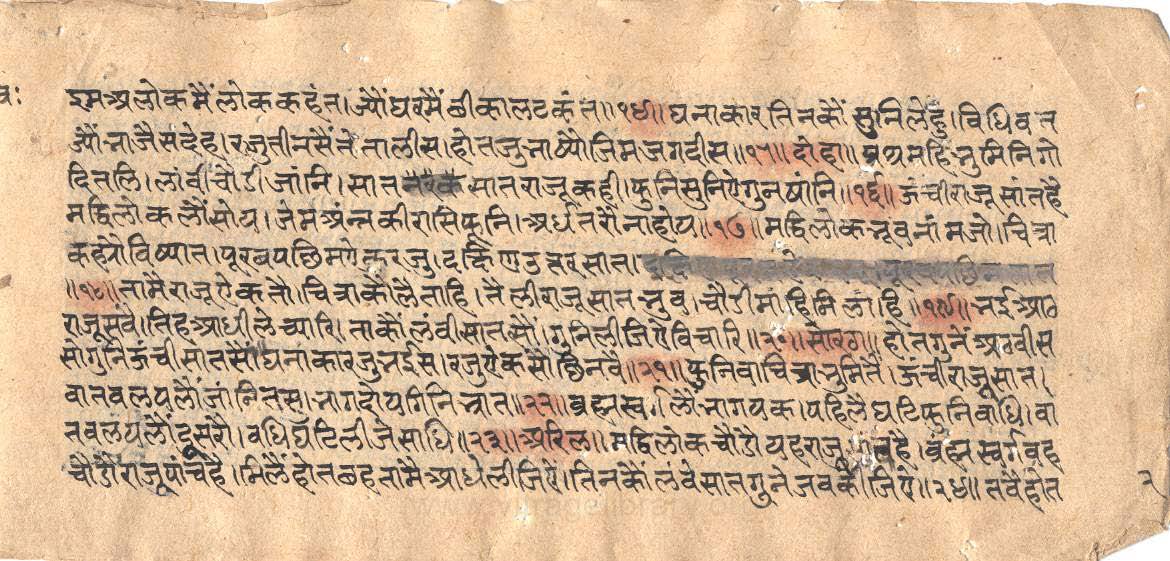 वः
इम अलोक मैं लोक कहंत। ज्यौं घर मैं छीका लटकंत॥१४॥ घनाकार तिनकौं सुनि लेहु। विधिवत
ज्यौं भाजै संदेह। रजु तीन सैं ते तालीस। होत जु भाष्यौ जिम जगदीस॥१५॥ दोहा॥ प्रथमहि भुमि निगो
दि तलि। लांबी चौडी जांनि। सात सात राजू कही। फुनि सुनिऐ गुन षांनि॥१६॥ ऊंची राजू सात है
मद्धि लोक लौं सोय। जेम अंन की रासि फुनि। अर्ध तरौ ना होय॥१७॥ मद्धि लोक भूव नांम जो। चित्रा
कहे वि ष्यात। पूरब पछिम ऐक रजु। दक्षिण उतर सात।
॥१८॥ तामै राजू ऐक तो। चित्रा कौ लै ताहि। तैली राजू सात भुव। चौडी मांहि मिलाहि॥१९॥ भई आठ
राजू सबै। तिह आधी ले च्यारि। ताकौं लंबी सात सौं। गुनि लीजिऐ विचारि॥२०॥ सोरठा॥ होत गुनें अठवीस
सो गुनि ऊंची सात सौं। घनाकार जु भईस। रजु ऐक सौ छिनवै॥२१॥ फुनि वा चित्रा भुमि तैं। ऊंची राजू सात।
वातवलय लौं जांनि तस। भाग दोय गिनि भ्रात॥२२॥ ब्रह्म स्वर्ग लौं भाग यक। पहिलै घटि फुनि वाधि। वा
तवलय लौं दूसरौ। वधि घटि लीजे साधि॥२३॥ अरिल॥ मद्धि लोक चौडौ यह राजू है। ब्रह्म स्वर्ग वह
चौडौ राजू पांच है। मिलैं होत छह तामै आधे लीजिऐ। तिनकौं लंबे सात गुने जब कीजिऐ॥२४॥ तबै होत
२